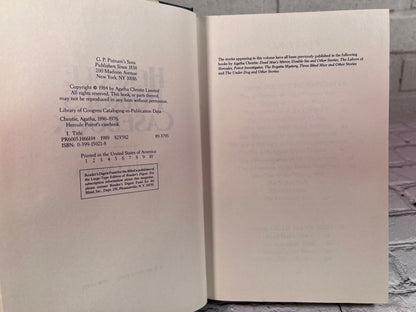 G. P. Putnam's Sons
Publishers Since 1838
200 Madison Avenue
New York, NY 10016
Copyright © 1984 by Agatha Christie Limited
All rights reserved. This book, or parts thereof,
may not be reproduced in any form without permission.
Library of Congress Cataloging-in-Publication Data
Christie, Agatha, 1890–1976.
Hercule Poirot's casebook.
I. Title.
PR6005.H66H4 1989 823'.912
ISBN: 0-399-15021-8
Printed in the United States of America
1 2 3 4 5 6 7 8 9 10
Reader's Digest Fund for the Blind is publisher of
the Large-Type Edition of Reader's Digest. For
subscription information about this magazine,
please contact Reader's Digest Fund for the
Blind, Inc., Dept. 250, Pleasantville, N.Y. 10570.
The stories appearing in this volume have all been previously published in the following
books by Agatha Christie: Dead Man's Mirror, Double Sin and Other Stories, The Labors of
Hercules, Poirot Investigates, The Regatta Mystery, Three Blind Mice and Other Stories
and The Under Dog and Other Stories.